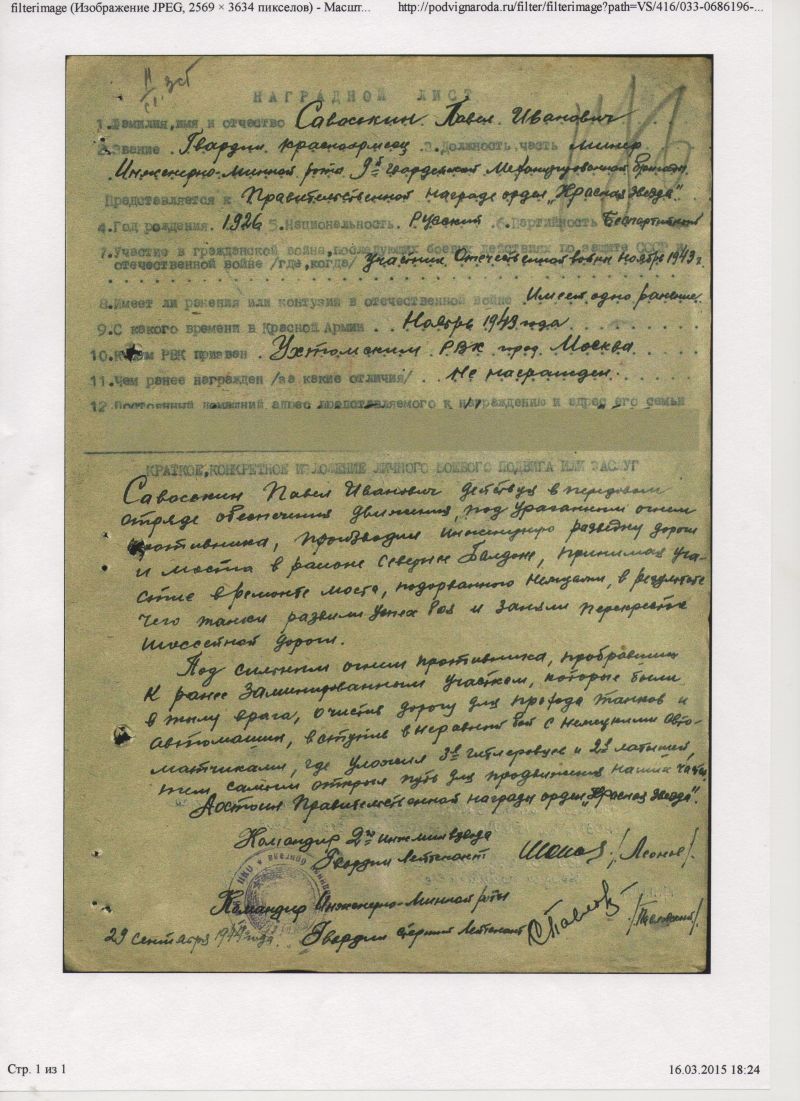 filterimage (Изображение JPEG, 2569 × 3634 пикселов) - Масшт...
http://podvignaroda.ru/filter/filterimage?path=VS/416/033-0686196-...
НАГРАДНОЙ ЛИСТ
1.Фамилия,имя и отчество Савоськин Павел Иванович
2.Звание . Гвардии красноармеец . 3.Должность,часть минер
Инженерно-Минной роты 9й Гвардейской Механизированной бригады
Представляется к Правительственной награде орден „Красная Звезда".
4.Год рождения. 1926 5.Национальность. Русский .6.Партийность Беспартийный
7.Участие в гражданской войне,последующих боевых действиях по защите СССР и
отечественной войне /где,когда/ участник Отечественной войны ноябрь 1943 г.
8.Имеет ли ранения или контузии в отечественной войне . Имеет одно ранение
9.С какого времени в Красной Армии . . Ноябрь 1943 года
10.Каким РВК призван . Ухтомским РВК гор. Москва
11.Чем ранее награжден /за какие отличия/ . . Не награжден.
12.Постоянный домашний адрес представляемого к награждению и адрес его семьи
КРАТКОЕ,КОНКРЕТНОЕ ИЗЛОЖЕНИЕ ЛИЧНОГО БОЕВОГО ПОДВИГА ИЛИ ЗАСЛУГ
Савоськин Павел Иванович действуя в передовом
отряде обеспечения движения, под ураганным огнем
противника, производил инженерную разведку дороги
и моста в районе Севернее Балдоне, принимая уча-
стие в ремонте моста, подорванного немцами, в результате
чего танки развили успех боя и заняли перекресток
шоссейной дороги.
Под сильным огнем противника, пробравшись
к ранее заминированным участкам, которые были
в тылу врага, очистив дорогу для прохода танков и
автомашин, вступив в неравный бой с немецкими авто-
матчиками, где уложил 3х гитлеровцев и 2х латышей,
тем самым открыл путь для продвижения наших частей.
Достоин Правительственной награды орден „Красная Звезда".
Командир 2го инж.мин взвода
Гвардии Лейтенант /Леонов/.
Командир Инженерно-Минной роты
29 сентября 1944 года. Гвардии старший Лейтенант
Стр. 1 из 1
16.03.2015 18:24